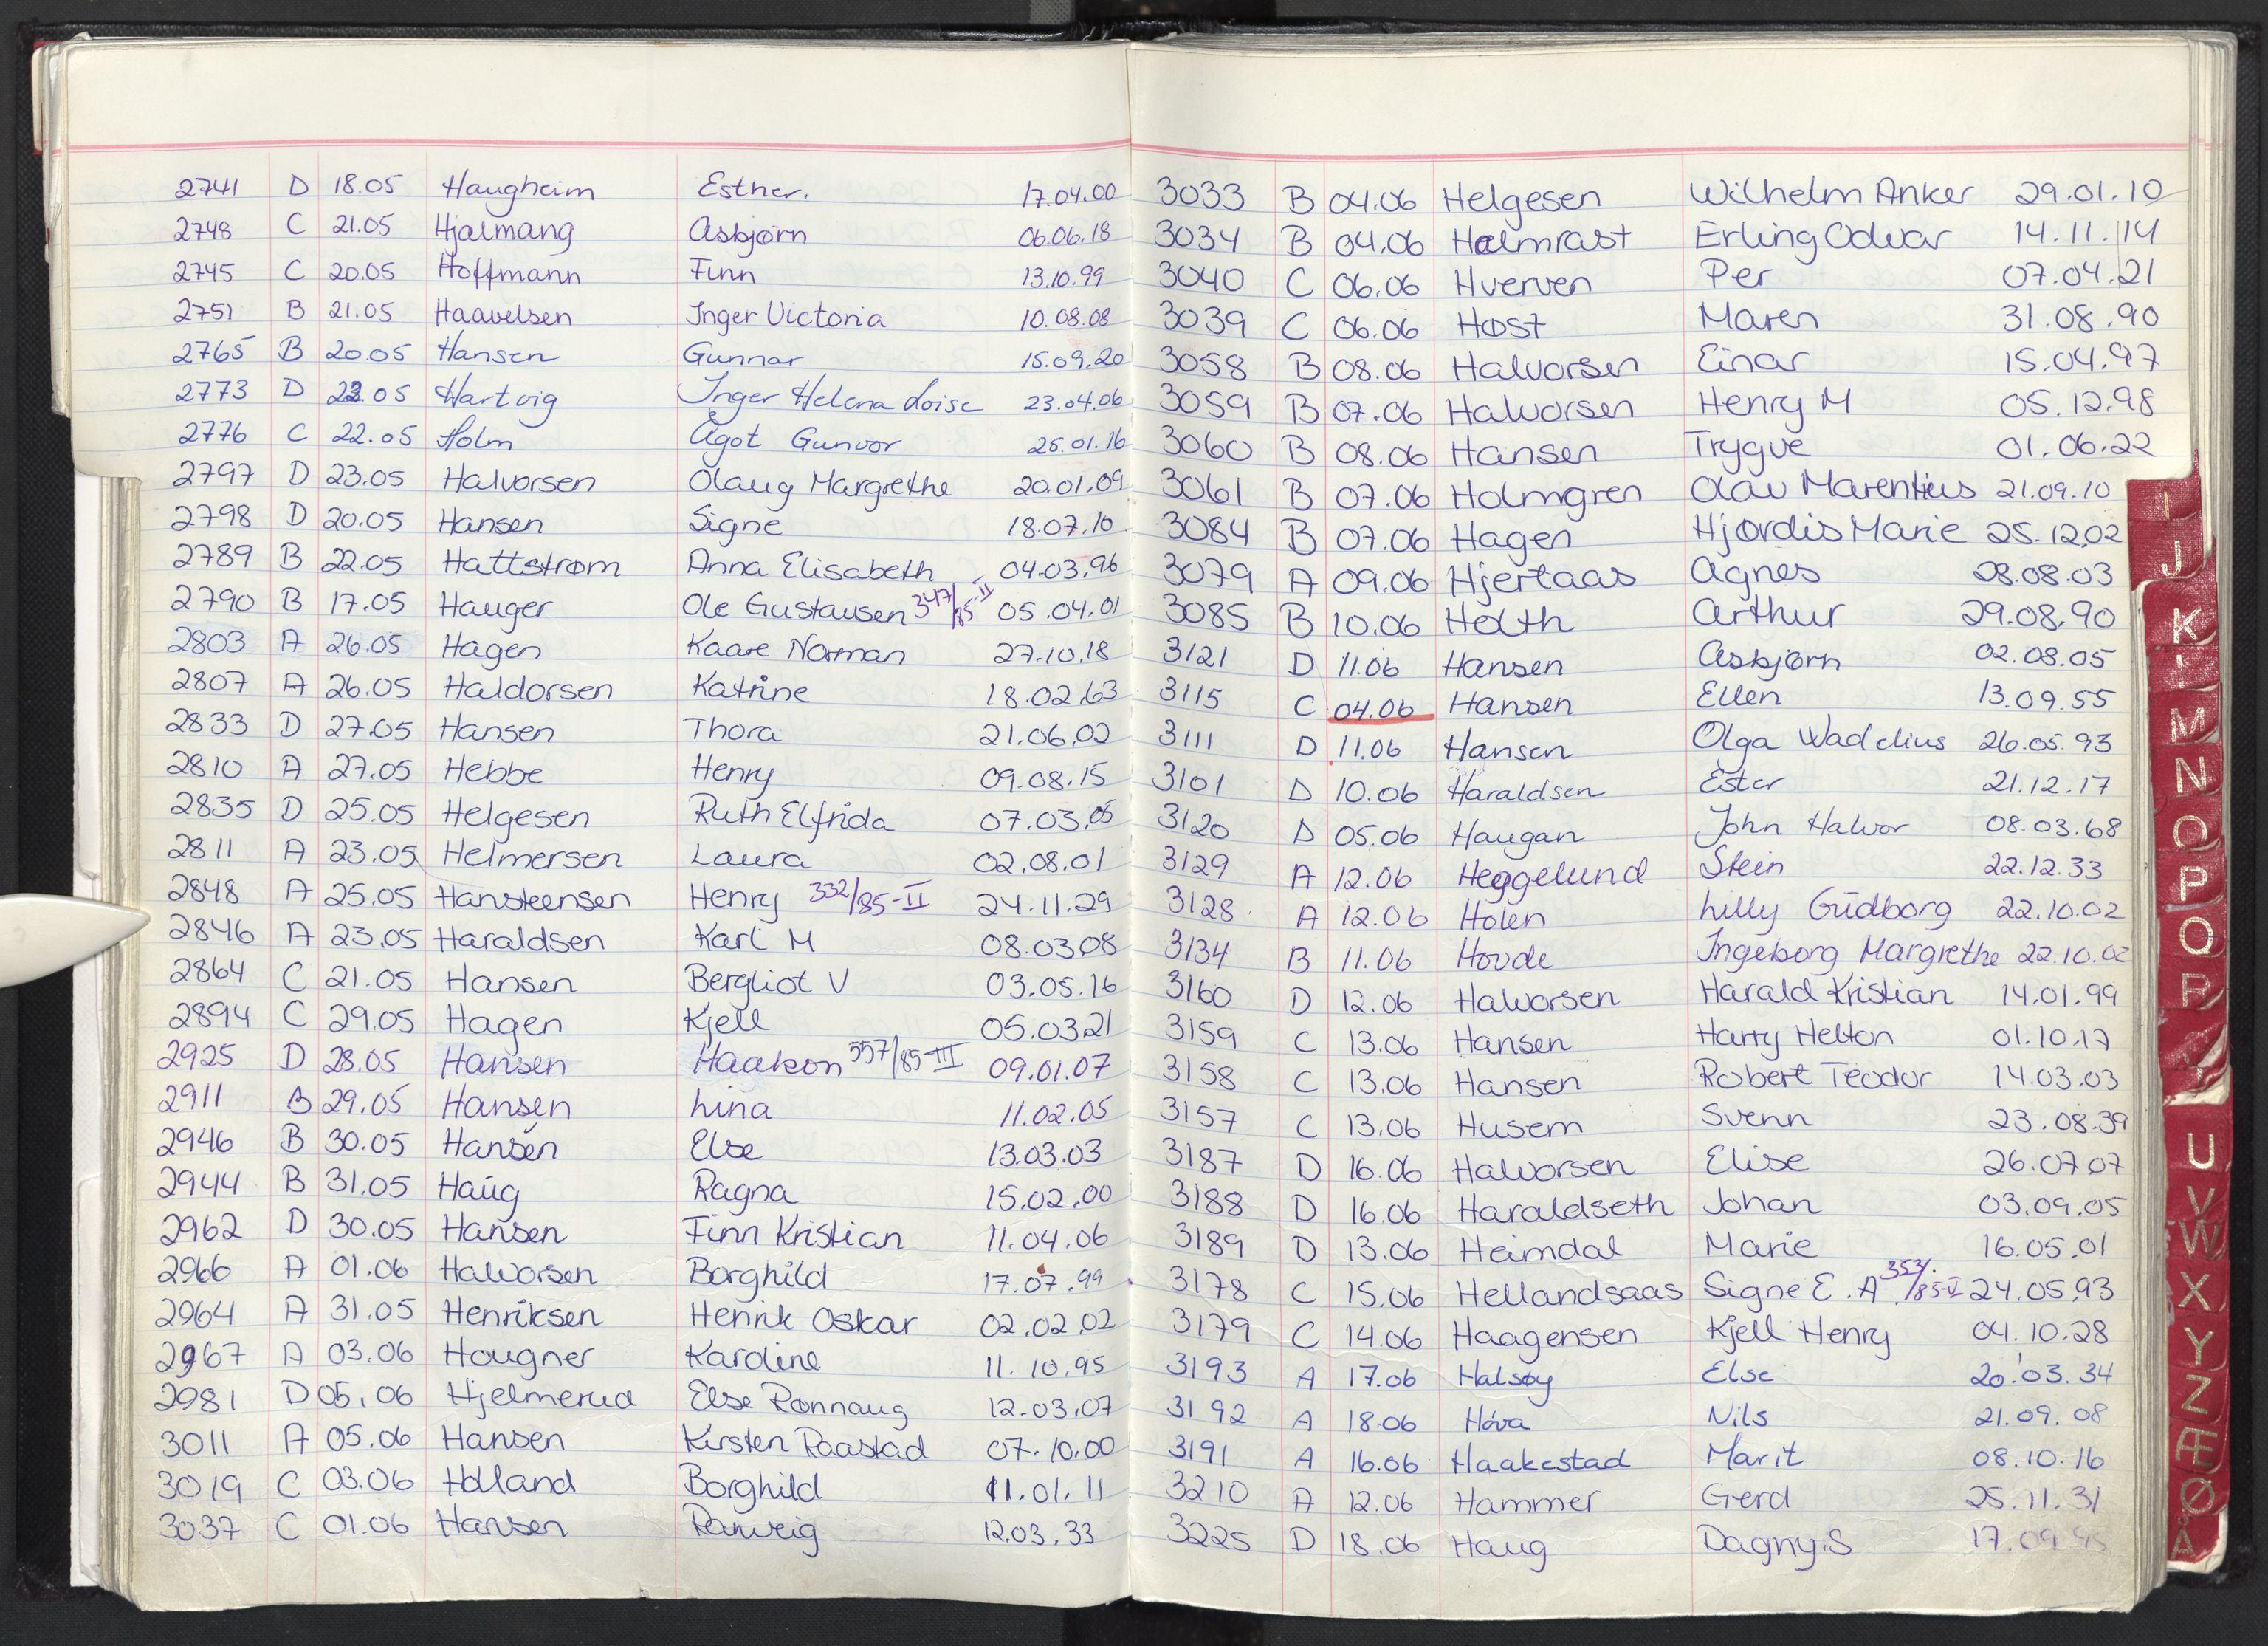 2741 D 18.05 Haugheim Esther. 17.04.00
2748 C 21.05 Hjalmang Asbjørn 06.06.18
2745 C 20.05 Hoffmann Finn 13.10.99
2751 B 21.05 Haavelsen Inger Victoria 10.08.08
2765 B 20.05 Hansen Gunnar 15.09.20
2773 D 22.05 Hartvig Inger Helena Loise 23.04.06
2776 C 22.05 Holm Ågot Gunvor 25.01.16
2797 D 23.05 Halvorsen Olaug Margrethe 20.01.09
2798 D 20.05 Hansen Signe 18.07.10
2789 B 22.05 Hattstrøm Anna Elisabeth 04.03.96
2790 B 17.05 Hauger Ole Gustausen 347/85-II 05.04.01
2803 A 26.05 Hagen Kaare Norman 27.10.18
2807 A 26.05 Haldorsen Katrine 18.02.63
2833 D 27.05 Hansen Thora 21.06.02
2810 A 27.05 Hebbe Henry 09.08.15
2835 D 25.05 Helgesen Ruth Elfrida 07.03.05
2811 A 23.05 Helmersen Laura 02.08.01
2848 A 25.05 Hansteensen Henry 332/85-II 24.11.29
2846 A 23.05 Haraldsen Karl M 08.03.08
2864 C 21.05 Hansen Bergliot V 03.05.16
2894 C 29.05 Hagen Kjell 05.03.21
2925 D 28.05 Hansen Haakon 357/85-III 09.01.07
2911 B 29.05 Hansen Lina 11.02.05
2946 B 30.05 Hansen Else 13.03.03
2944 B 31.05 Haug Ragna 15.02.00
2962 D 30.05 Hansen Finn Kristian 11.04.06
2966 A 01.06 Halvorsen Borghild 17.07.99
2964 A 31.05 Henriksen Henrik Oskar 02.02.02
2967 A 03.06 Hougner Karoline 11.10.95
2981 D 05.06 Hjelmerud Else Rønnaug 12.03.07
3011 A 05.06 Hansen Kirsten Raastad 07.10.00
3019 C 03.06 Holland Borghild 11.01.11
3037 C 01.06 Hansen Ranveig 12.03.33
3033 B 04.06 Helgesen Wilhelm Anker 29.01.10
3034 B 04.06 Holmrast Erling Odvar 14.11.14
3040 C 06.06 Hverven Per 07.04.21
3039 C 06.06 Høst Maren 31.08.90
3058 B 08.06 Halvorsen Einar 15.04.97
3059 B 07.06 Halvorsen Henry M 05.12.98
3060 B 08.06 Hansen Trygve 01.06.22
3061 B 07.06 Holmgren Olav Marentius 21.09.10
3084 B 07.06 Hagen Hjørdis Marie 25.12.02
3079 A 09.06 Hjertaas Agnes 28.08.03
3085 B 10.06 Holth Arthur 29.08.90
3121 D 11.06 Hansen Asbjørn 02.08.05
3115 C 04.06 Hansen Ellen 13.09.55
3111 D 11.06 Hansen Olga Wadelius 26.05.93
3101 D 10.06 Haraldsen Ester 21.12.17
3120 D 05.06 Haugan John Halvor 08.03.68
3129 A 12.06 Heggelund Stein 22.12.33
3128 A 12.06 Holen Lilly Gudborg 22.10.02
3134 B 11.06 Hovde Ingeborg Margrethe 22.10.02
3160 D 12.06 Halvorsen Harald Kristian 14.01.99
3159 C 13.06 Hansen Harry Helton 01.10.17
3158 C 13.06 Hansen Robert Teodor 14.03.03
3157 C 13.06 Husem Svenn 23.08.39
3187 D 16.06 Halvorsen Elise 26.07.07
3188 D 16.06 Haraldseth Johan 03.09.05
3189 D 13.06 Heimdal Marie 16.05.01
3178 C 15.06 Hellandsaas Signe E. A 353/85-I 24.05.93
3179 C 14.06 Haagensen Kjell Henry 04.10.28
3193 A 17.06 Halsøy Else 20.03.34
3192 A 18.06 Hóva Nils 21.09.08
3191 A 16.06 Haakestad Marit 08.10.16
3210 A 12.06 Hammer Gerd 25.11.31
3225 D 18.06 Haug Dagny.S 17.09
I
J
K
M
N
O
P
Q
R
U
V
W
X
Y
Z
Æ
Ø
Å